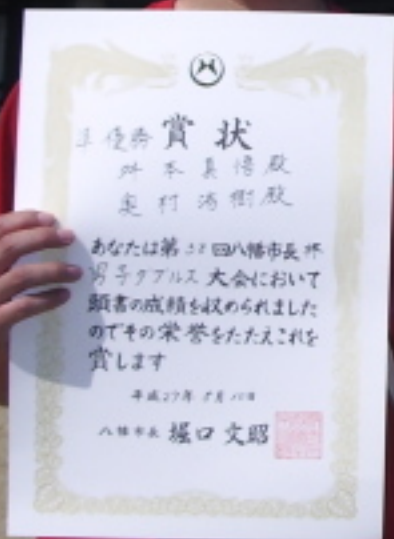 準優勝 賞状
舛本真悟殿
奥村 樹殿
あなたは第38回八幡市長杯
男子ダブルス大会において
頭書の成績を収められました
のでその栄誉をたたえこれを
賞します
平成27年5月10日
八幡市長 堀口文昭